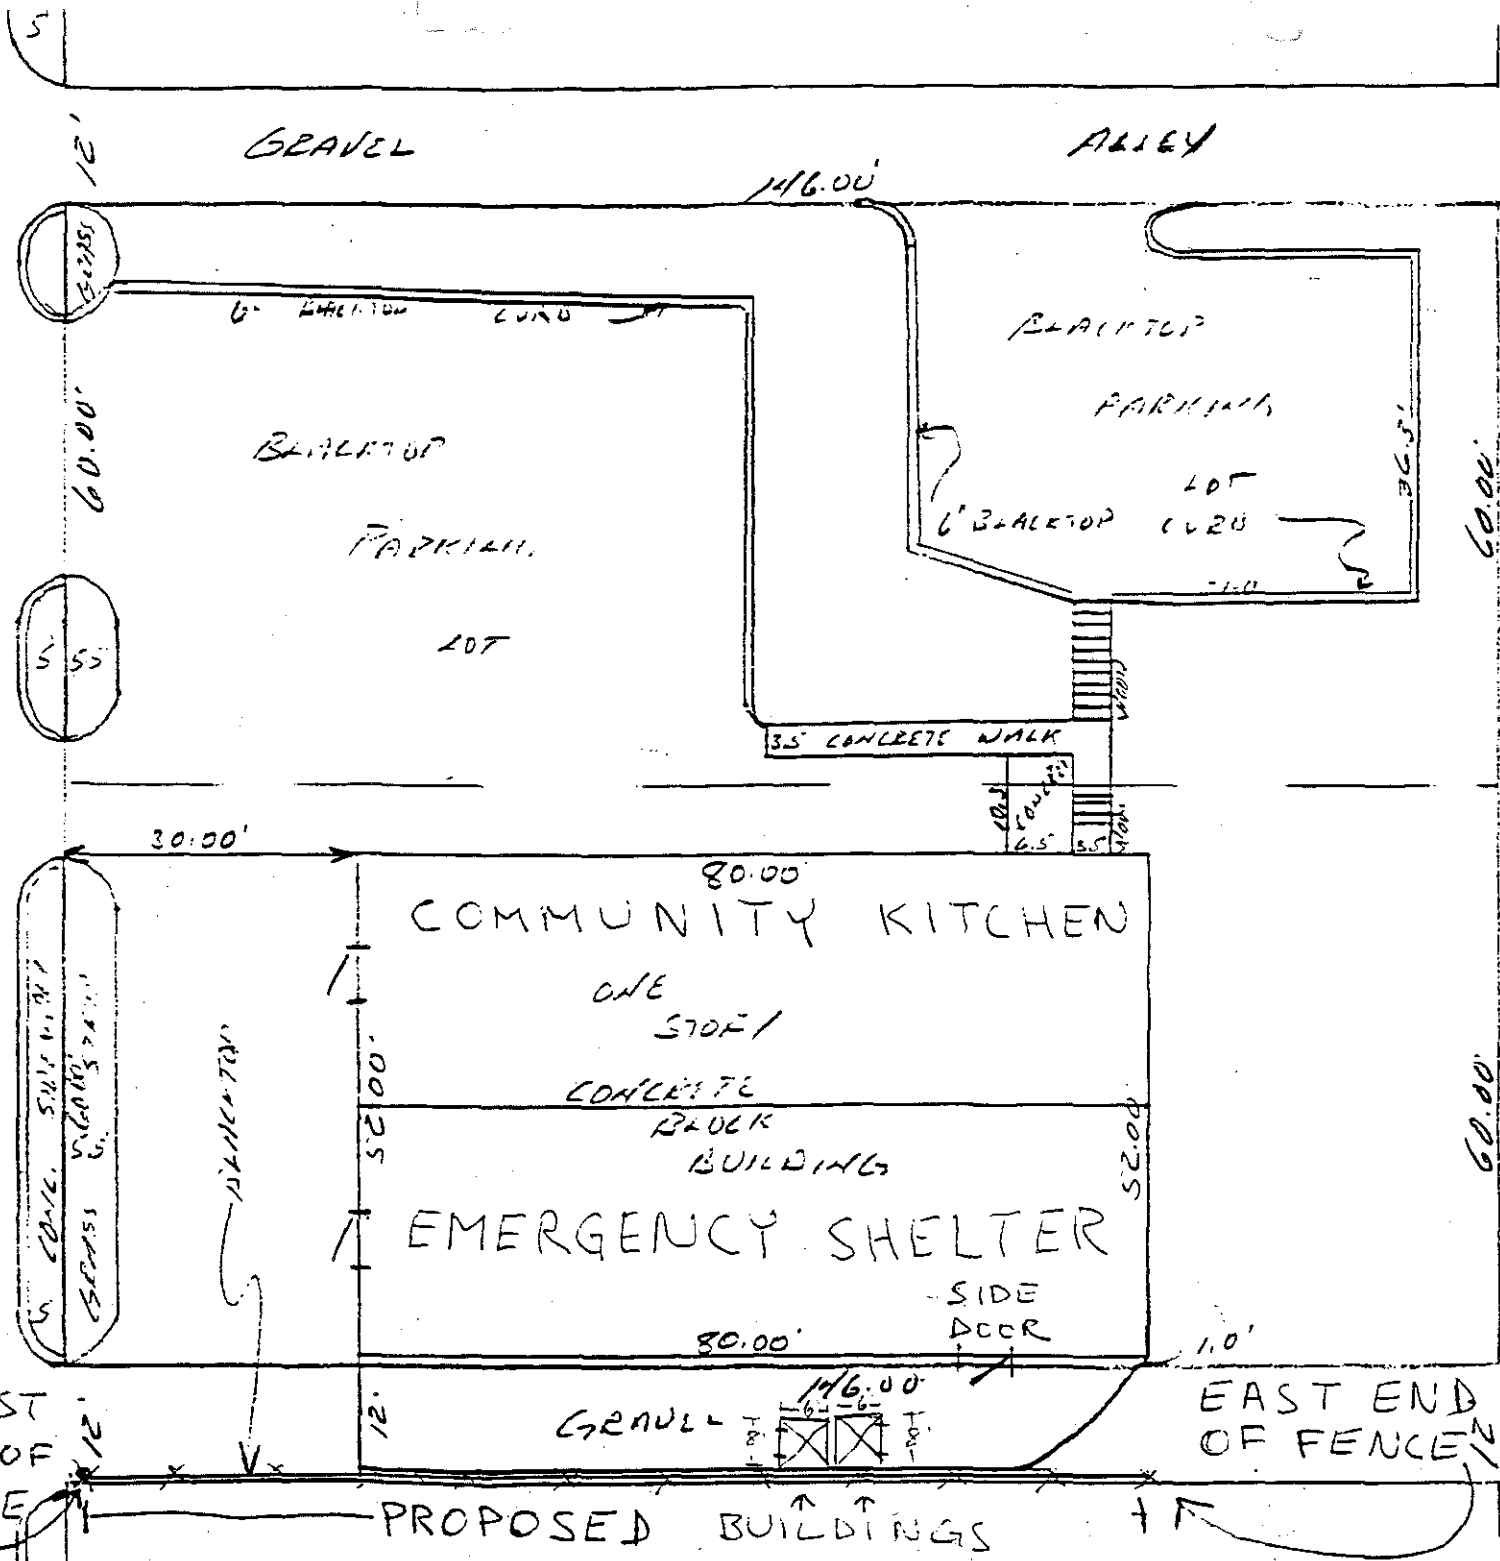 S
12'
GRAVEL
ALLEY
146.00'
GRASS
6" BLACKTOP CURB
BLACKTOP
PARKING
LOT
6" BLACKTOP CURB
36.5'
60.00'
BLACKTOP
PARKING
LOT
60.00'
S
SS
WOOD
3.5 CONCRETE WALK
CONCRETE
6.5
3.5
30.00'
80.00
COMMUNITY KITCHEN
ONE
STORY
CONCRETE
BLOCK
BUILDING
52.00'
52.00
60.00'
EMERGENCY SHELTER
SIDE
DOOR
80.00'
1.0'
BLACKTOP
CONC.
GRASS
S
146.00
GRAVEL
12'
6'
6'
8'
8'
EAST END
OF FENCE
12'
ST
OF
E
12'
PROPOSED BUILDINGS